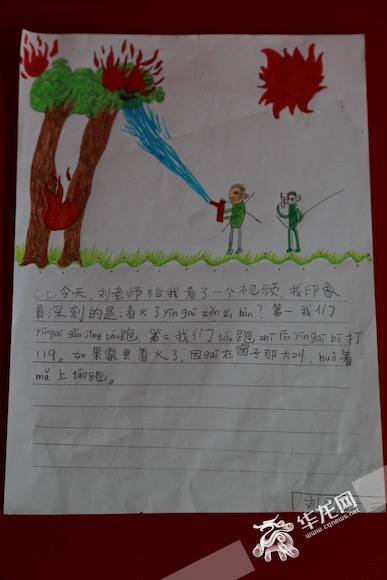 □□今天，刘老师给我看了一个视频，我印象
最深刻的是：着火了yīng gāi zěn么bàn？第一我们
yīng gāi gǎn jǐng táo跑，第二我们táo跑zhī后yīng gāi bō打
119。如果家里着火了，因gāi在窗子那大叫，huò着
mǎ上táo跑。
刘
华龙网
www.cqnews.net